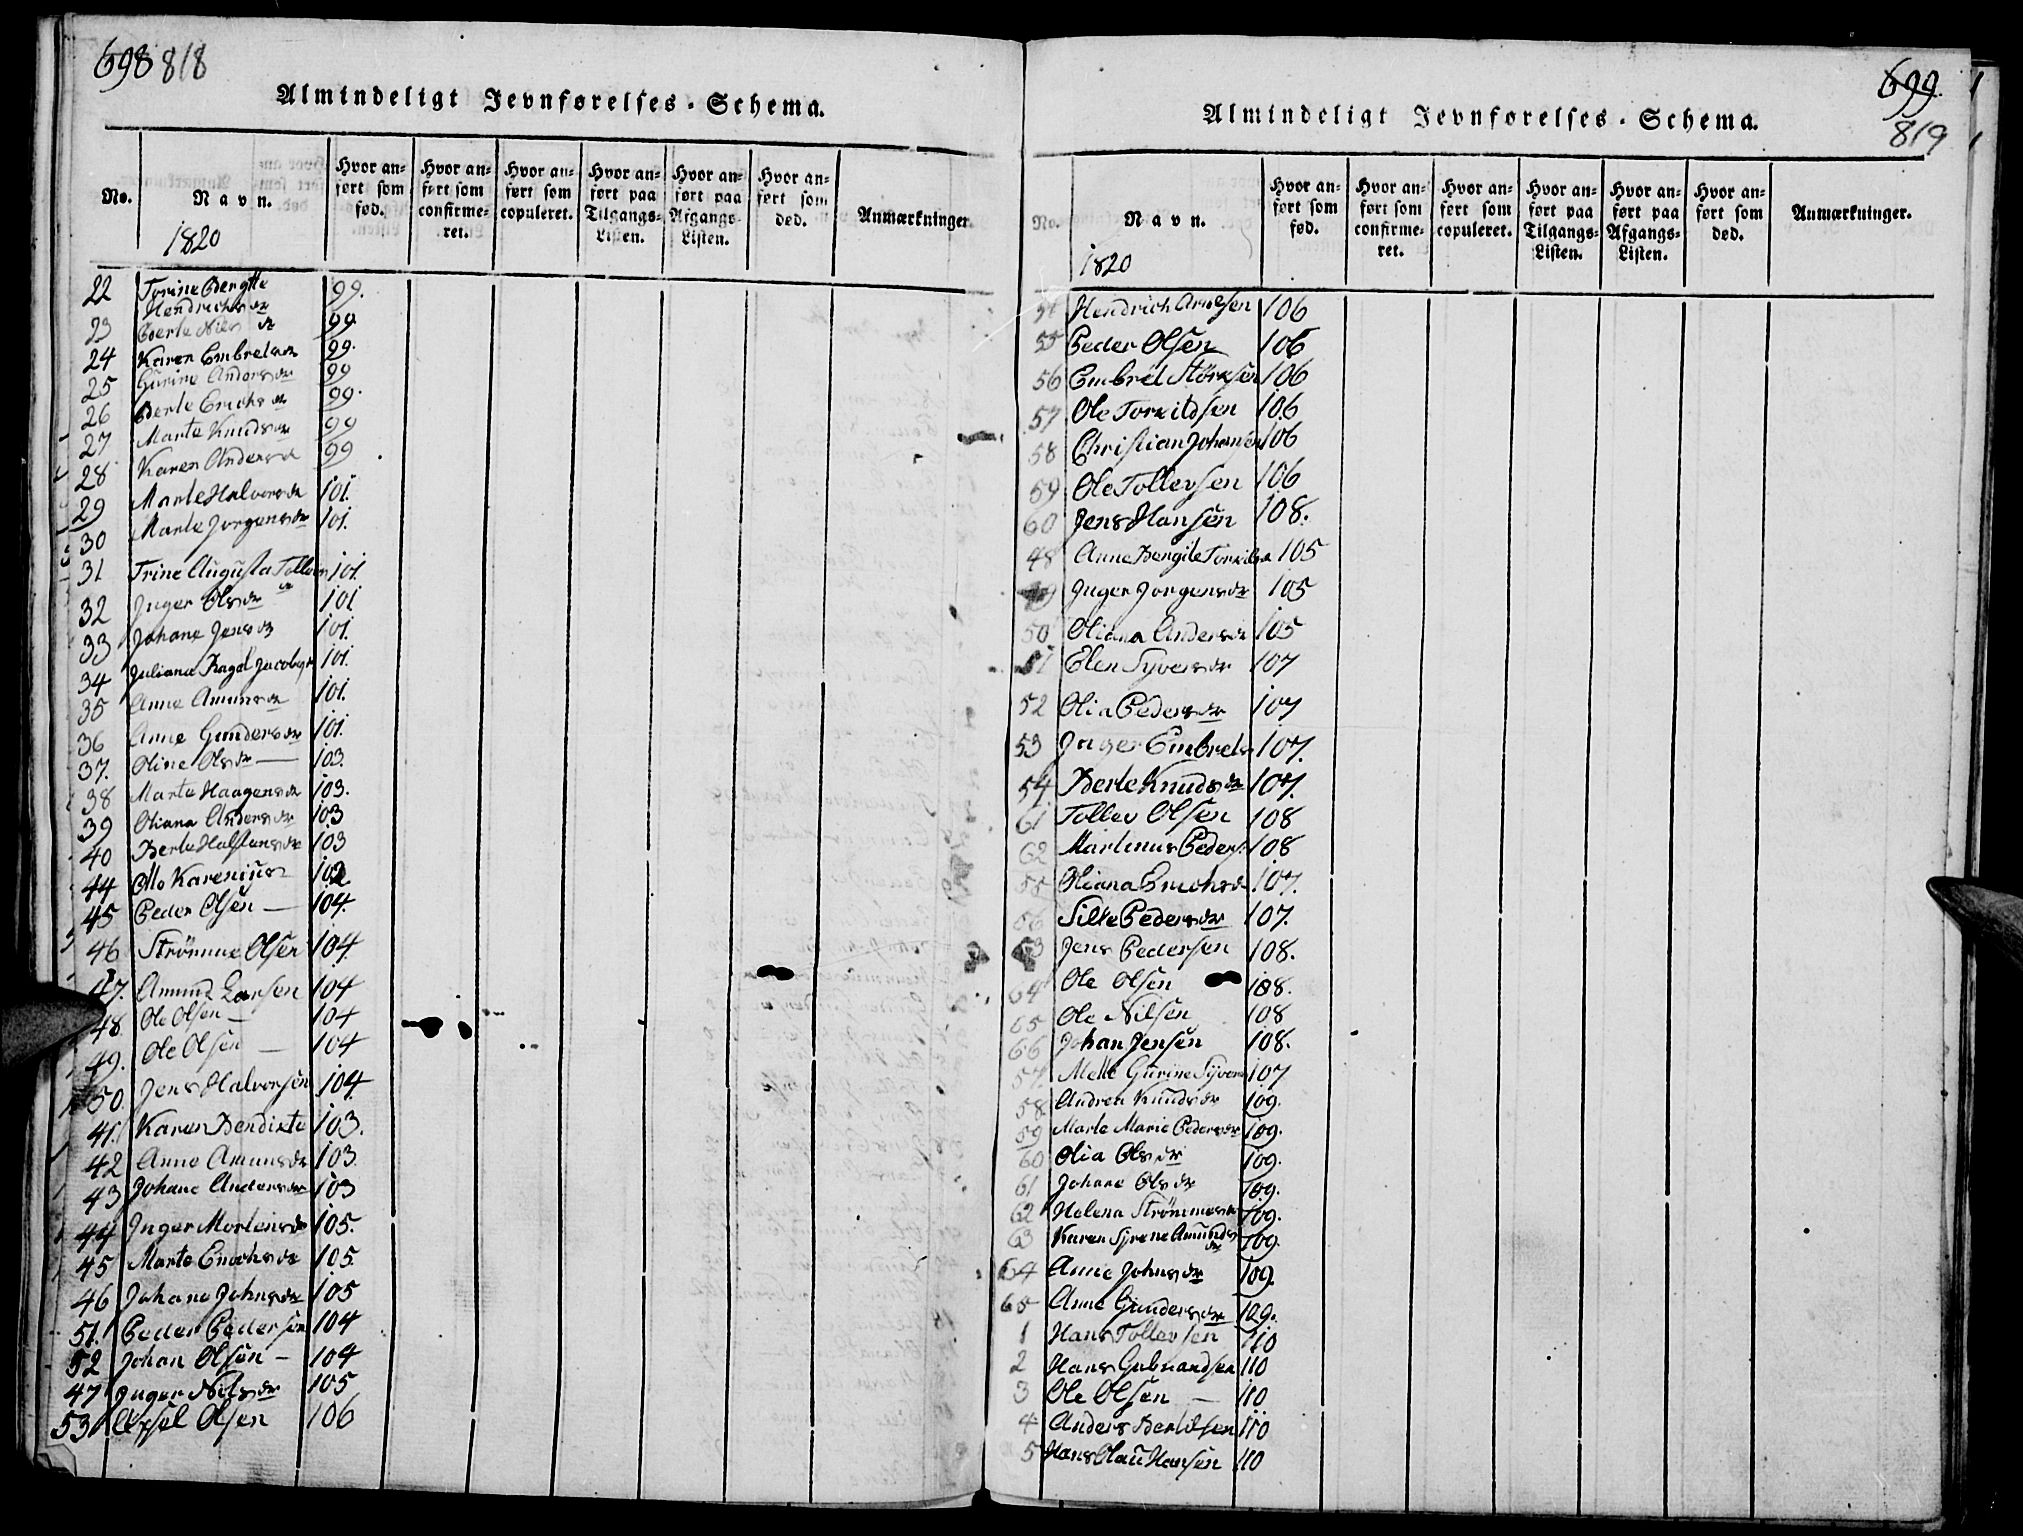 698 818
Almindeligt Jevnførelses-Schema.
No.
Navn.
Hvor anført som fød.
Hvor anført som confirmeret.
Hvor anført som copuleret.
Hvor anført paa Tilgangs-Listen.
Hvor anført paa Afgangs-Listen.
Hvor anført som død.
Anmærkninger.
1820
22 Torine Bergitte Hendrichsdr 99.
23 Berte Nilsdr 99
24 Karen Embretsdr 99.
25 Gurine Andersdr 99
26 Berte Erichsdr 99.
27 Marte Knudsdr 99
28 Karen Andersdr 99
29 Marte Halvorsdr 101.
30 Marte Jorgensdr 101.
31 Trine Augusta Tollevsdr 101.
32 Inger Olsdr 101
33 Johane Jensdr 101.
34 Juliana Ragel Jacobsdr 101.
35 Anne Amunsdr 101.
36 Anne Gundersdr 101.
37. Oline Olsdr — 103.
38 Marte Haagensdr 103.
39 Oliana Andersdr 103
40 Berte Halstensdr 103
44 Otto Karenius 102
45 Peder Olsen — 104.
46 Strömme Olsen 104.
47. Amund Larsen 104
48 Ole Olsen — 104
49. Ole Olsen — 104
50. Jens Halvorsen 104.
41. Karen Bendixte 103.
42 Anne Amunsdr 103.
43 Johane Andersdr 103
44 Inger Mortensdr 105.
45 Marte Enochsdr 105.
46 Johane Johnsdr 105
51. Peder Pedersen 104
52 Johan Olsen — 104
47 Inger Nilsdr 105
53 Axsel Olsen 106
699.
819
Almindeligt Jevnførelses-Schema.
No.
Navn.
Hvor anført som fød.
Hvor anført som confirmeret.
Hvor anført som copuleret.
Hvor anført paa Tilgangs-Listen.
Hvor anført paa Afgangs-Listen.
Hvor anført som død.
Anmærkninger.
1820
Hendrich Arnesen 106
55 Peder Olsen 106
56 Embret Störksen 106
57 Ole Torkildsen 106
58 Christian Johansen 106
59 Ole Tollevsen 106
60 Jens Hansen 108.
48 Anne Bergite Torkildsdr 105
Inger Jorgensdr 105
50 Oliana Andersdr 105
51 Elen Syversdr 107
52 Olia Pedersdr 107
53 Inger Embretsdr 107.
54. Berte Knudsdr 107.
61 Tollev Olsen 108
62 Martinus Peders. 108
55 Oliana Enochsdr 107.
56 Silke Pedersdr 107.
63 Jens Pedersen 108.
64 Ole Olsen 108.
65 Ole Nilsen 108
66 Johan Jensen 108.
57. Mette Gurine Syversdr 107
58 Andrea Knudsdr 109.
59 Marte Marie Pedersdr 109.
60 Olia Olsdr 109.
61 Johane Olsdr 109.
62 Helena Strömmesdr 109.
63 Karen Syrene Amundsdr 109.
64 Anne Johnsdr 109.
65 Anne Gundersdr 109.
1 Hans Tollevsen 110
2 Hans Gulbrandsen 110
3 Ole Olsen — 110
4 Anders Bertelsen 110
5 Hans Olau Hansen 110